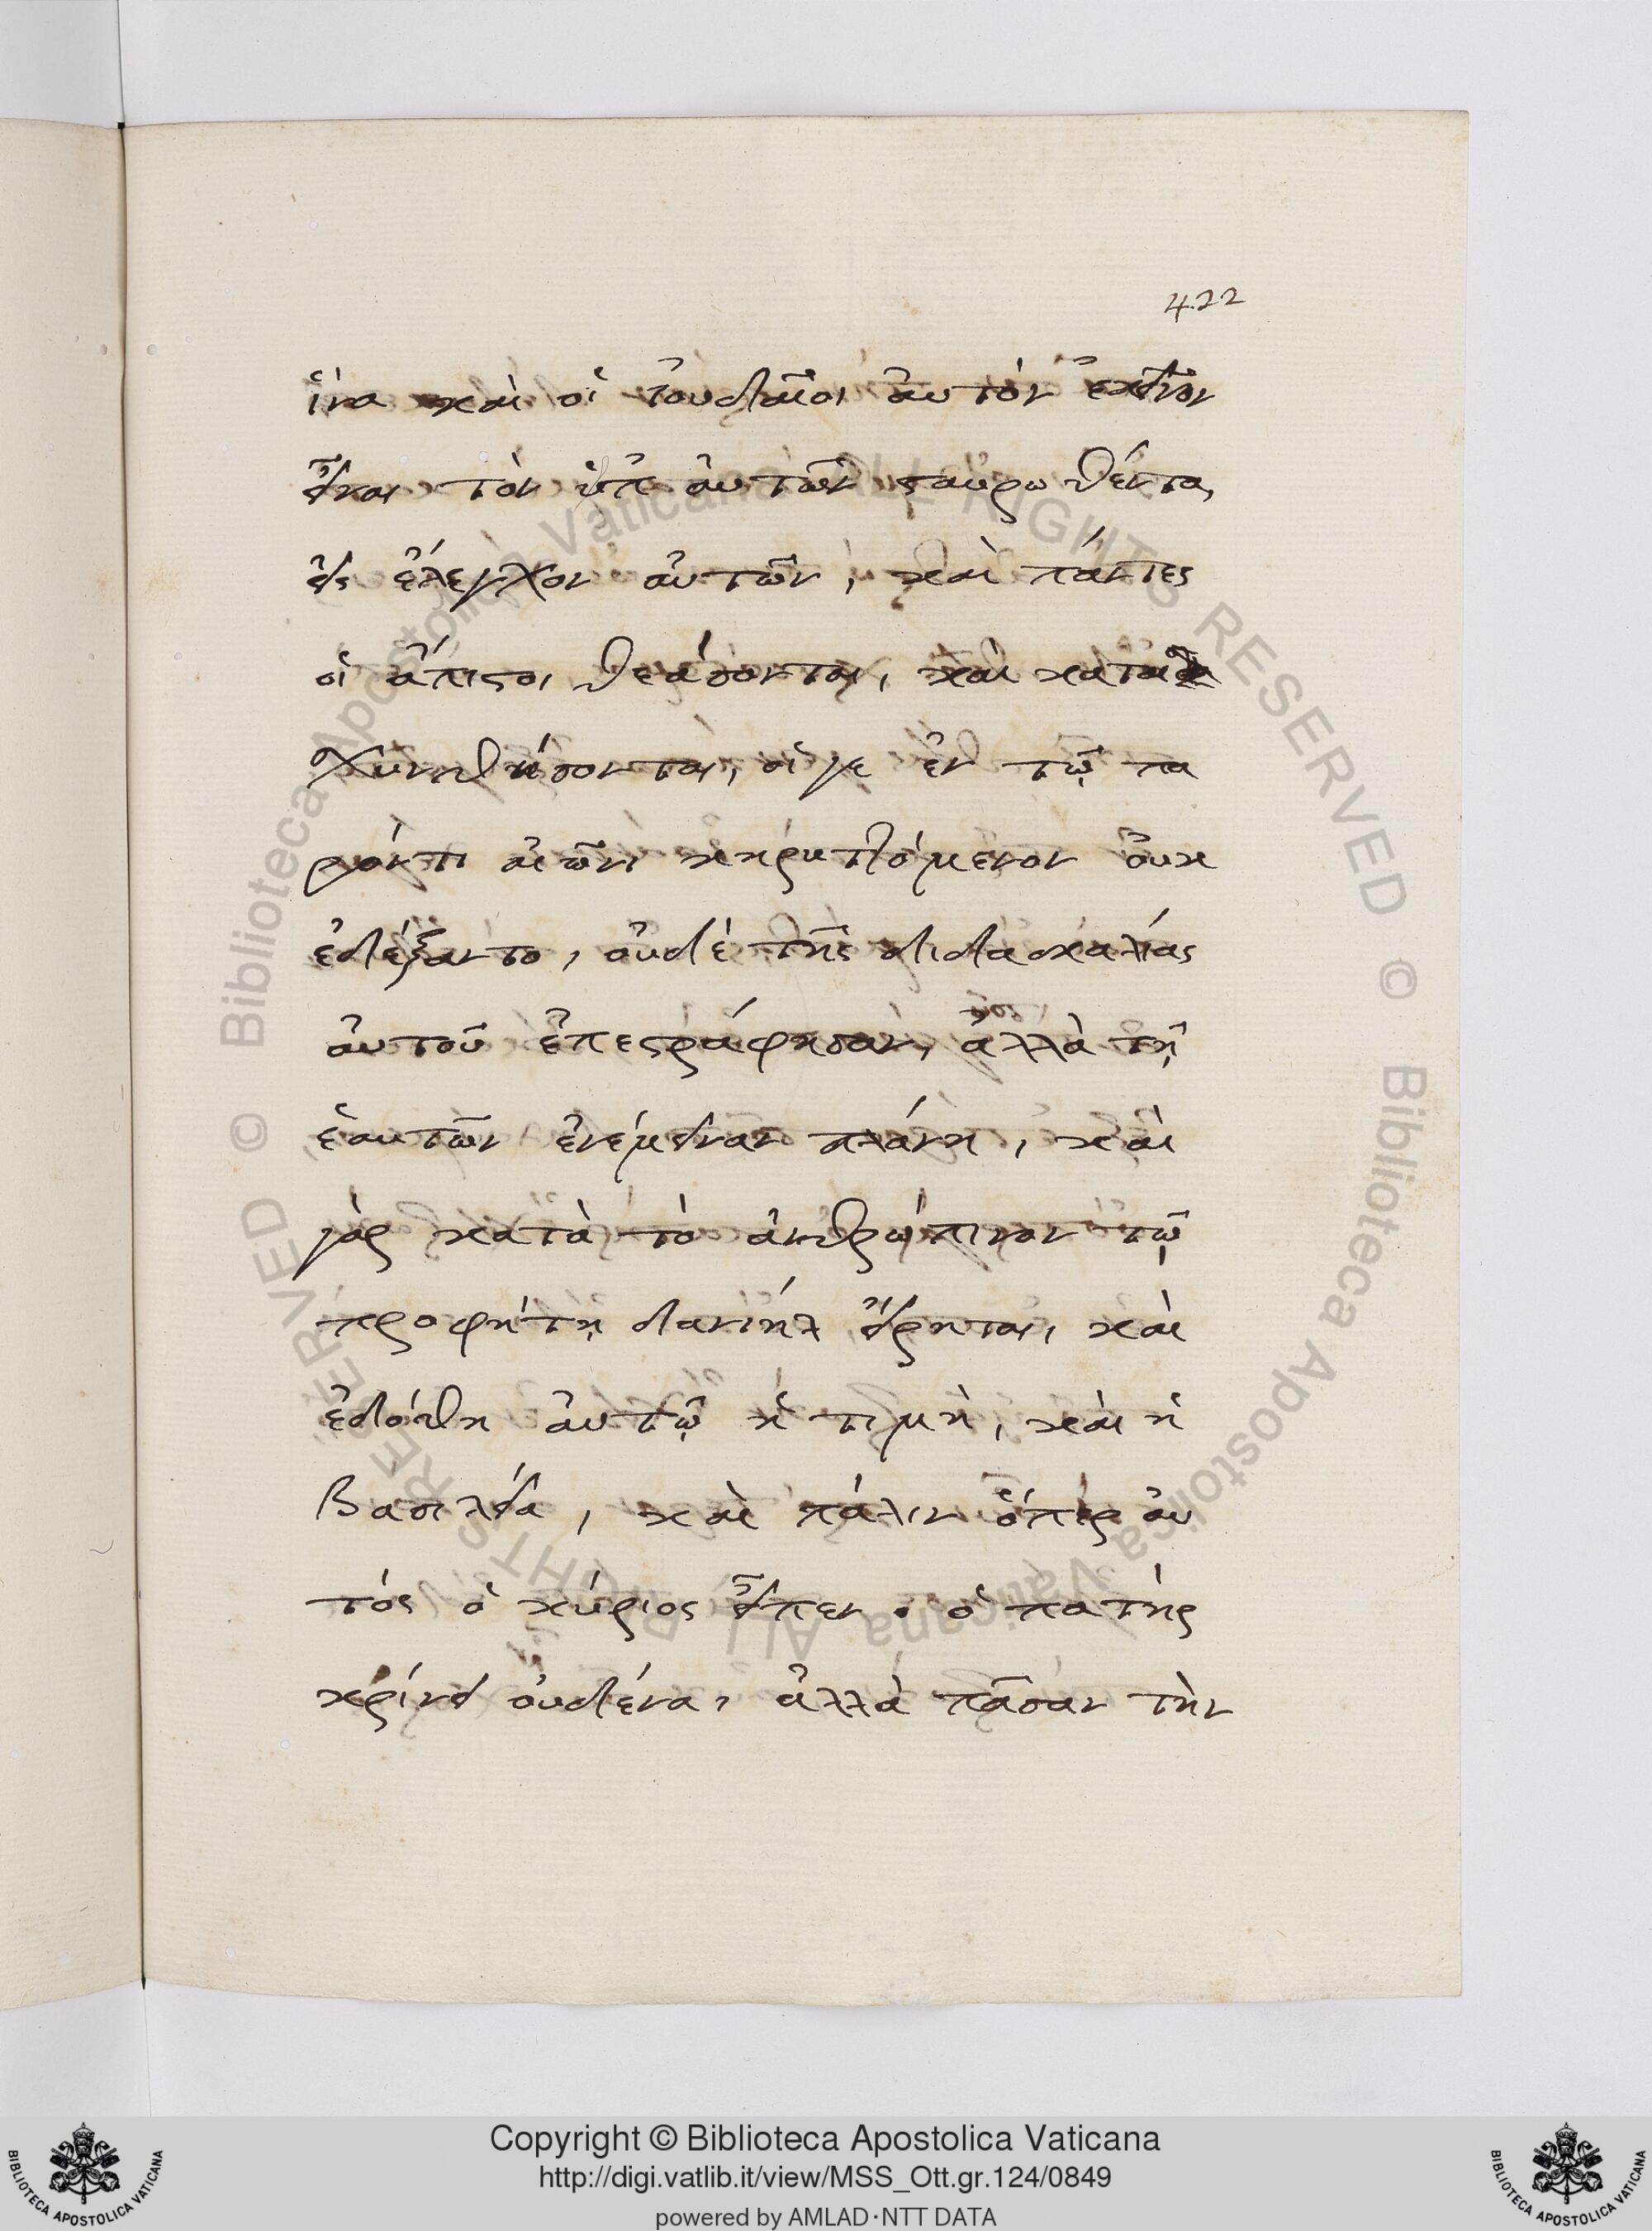 422
ἵνα καὶ οἱ ἰουδαῖοι αὐτὸν ἐκεῖνον
εἶναι τὸν ὑπ' αὐτῶν σταυρωθέντα,
εἰς ἔλεγχον αὐτῶν, καὶ πάντες
οἱ ἄπιστοι θεάσονται, καὶ καται
σχυνθήσονται, οἵ γε ἐν τῷ πα
ρόντι αἰῶνι κηρυττόμενον οὐκ
ἐδέξαντο, οὐδὲ τῆς διδασκαλίας
αὐτοῦ ἐπεστράφησαν, ἀλλὰ τῇ
ἑαυτῶν ἐνέμειναν πλάνη, καὶ
γὰρ κατὰ τὸ ἀνθρώπινον τῷ
προφήτῃ δανιὴλ εἴρηται, καὶ
ἐδόθη αὐτῷ ἡ τιμὴ, καὶ ἡ
βασιλεία, καὶ πάλιν ὅπερ αὐ
τὸς ὁ κύριος εἶπεν· ὁ πατὴρ
κρίνει οὐδένα, ἀλλὰ πᾶσαν τὴν
© Biblioteca Apostolica Vaticana ALL RIGHTS RESERVED © Biblioteca Apostolica Vaticana ALL RIGHTS RESERVED
Copyright © Biblioteca Apostolica Vaticana
http://digi.vatlib.it/view/MSS_Ott.gr.124/0849
powered by AMLAD·NTT DATA
BIBLIOTECA APOSTOLICA VATICANA
BIBLIOTECA APOSTOLICA VATICANA